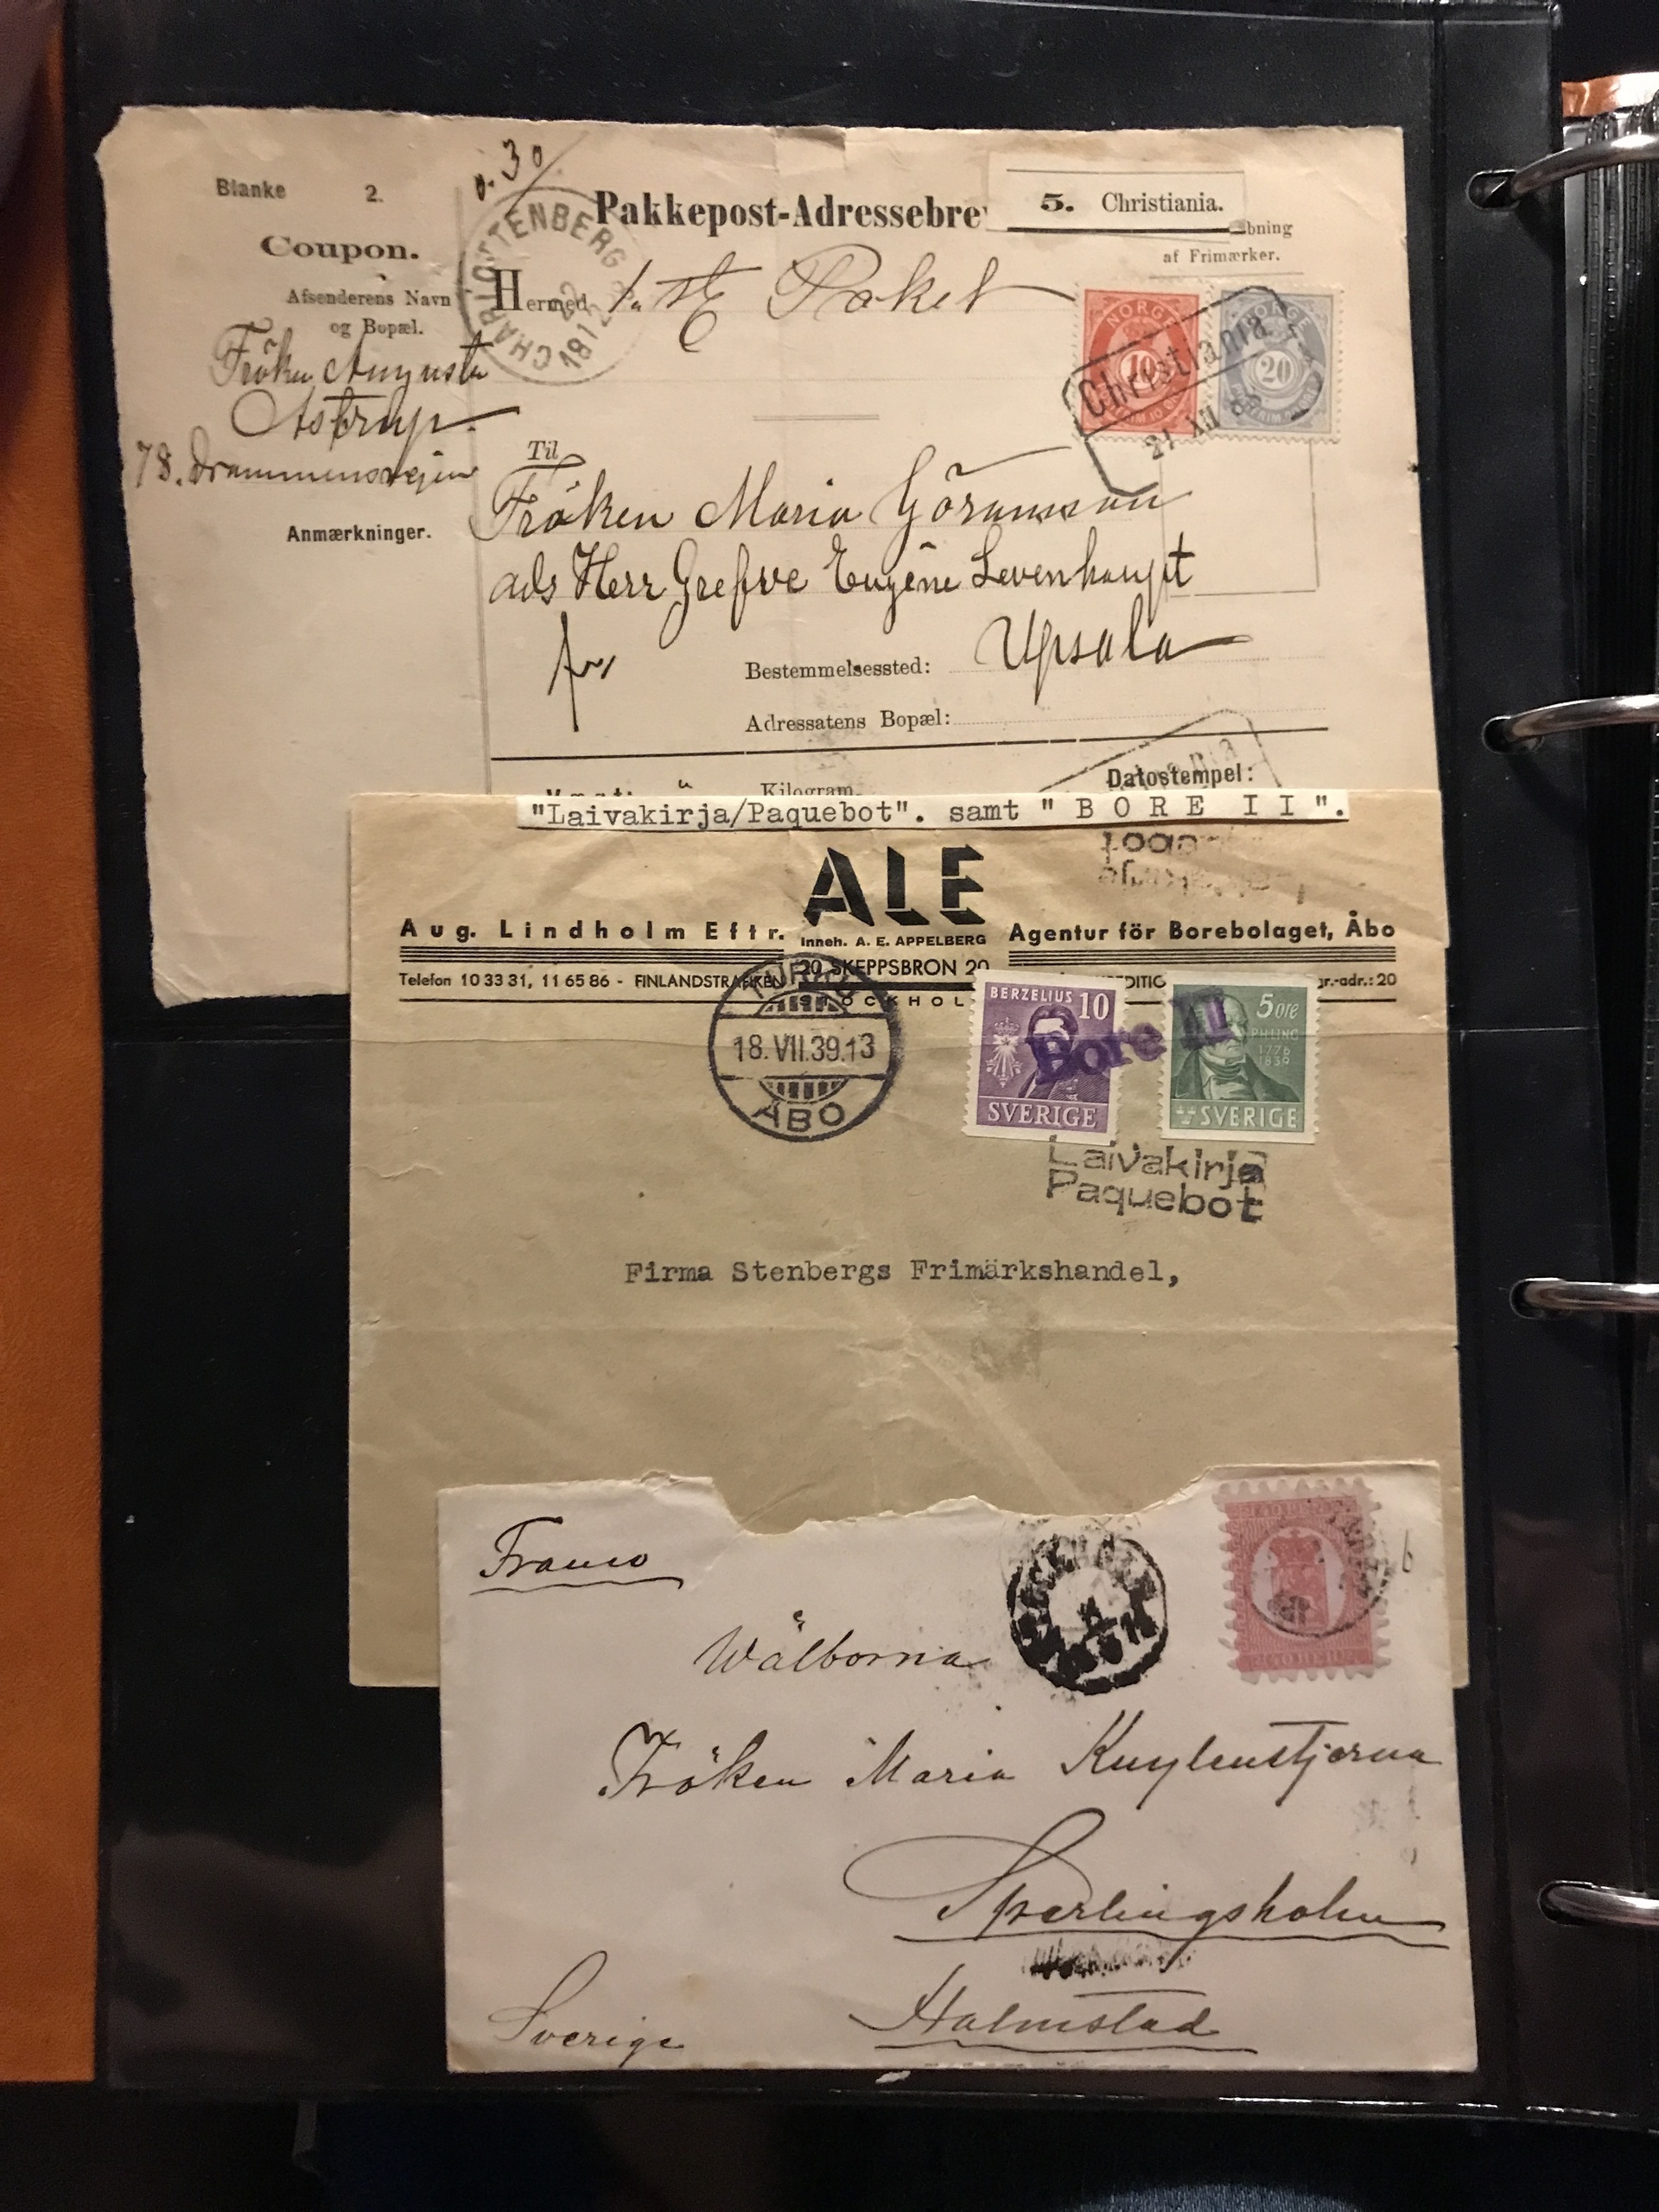 Blanke 2.
0.30
Pakkepost-Adressebre
5. Christiania.
Coupon.
bning
af Frimærker.
CHARLOTTENBERG
22
1812
Afsenderens Navn
og Bopæl.
Hermed 1. st Paket
NORGE
10
NORGE
20
Christiania
21 XII 8
Fröken Augusta
Astrup.
78. Drammensvejen
Til
Anmærkninger.
Fröken Maria Göransson
ads Herr Grefve Eugène Levenhaupt
Bestemmelsessted: Upsala
Adressatens Bopæl:
Kilogram.
Datostempel:
"Laivakirja/Paquebot". samt "BORE II".
ALE
Aug. Lindholm Eftr.
Inneh. A. E. APPELBERG
Agentur för Borebolaget, Åbo
Telefon 10 33 31, 11 65 86 - FINLANDSTRAFIKEN
20 SKEPPSBRON 20
DITIO
gr.-adr.: 20
STOCKHOL
TURKU
18.VII.39.13
ÅBO
BERZELIUS 10
SVERIGE
5 öre
P H LING
1776
1839
SVERIGE
Bore II
Laivakirja
Paquebot
Firma Stenbergs Frimärkshandel,
Franco
Wälborna
Fröken Maria Kuylenstjerna
Sperlingsholm
Halmstad
Sverige